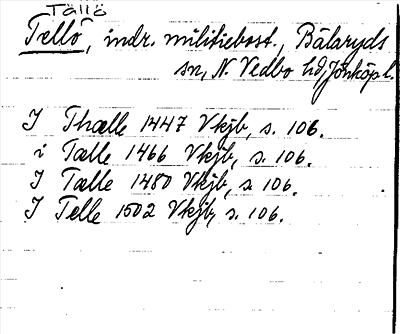 Tällö
Tellö, indr. militiebost., Bälaryds
sn, N. Vedbo hd, Jönköp l.
I Thælle 1447 Vkjb, s. 106.
i Tælle 1466 Vkjb, s. 106.
I Tælle 1480 Vkjb, s. 106.
I Telle 1502 Vkjb, s. 106.